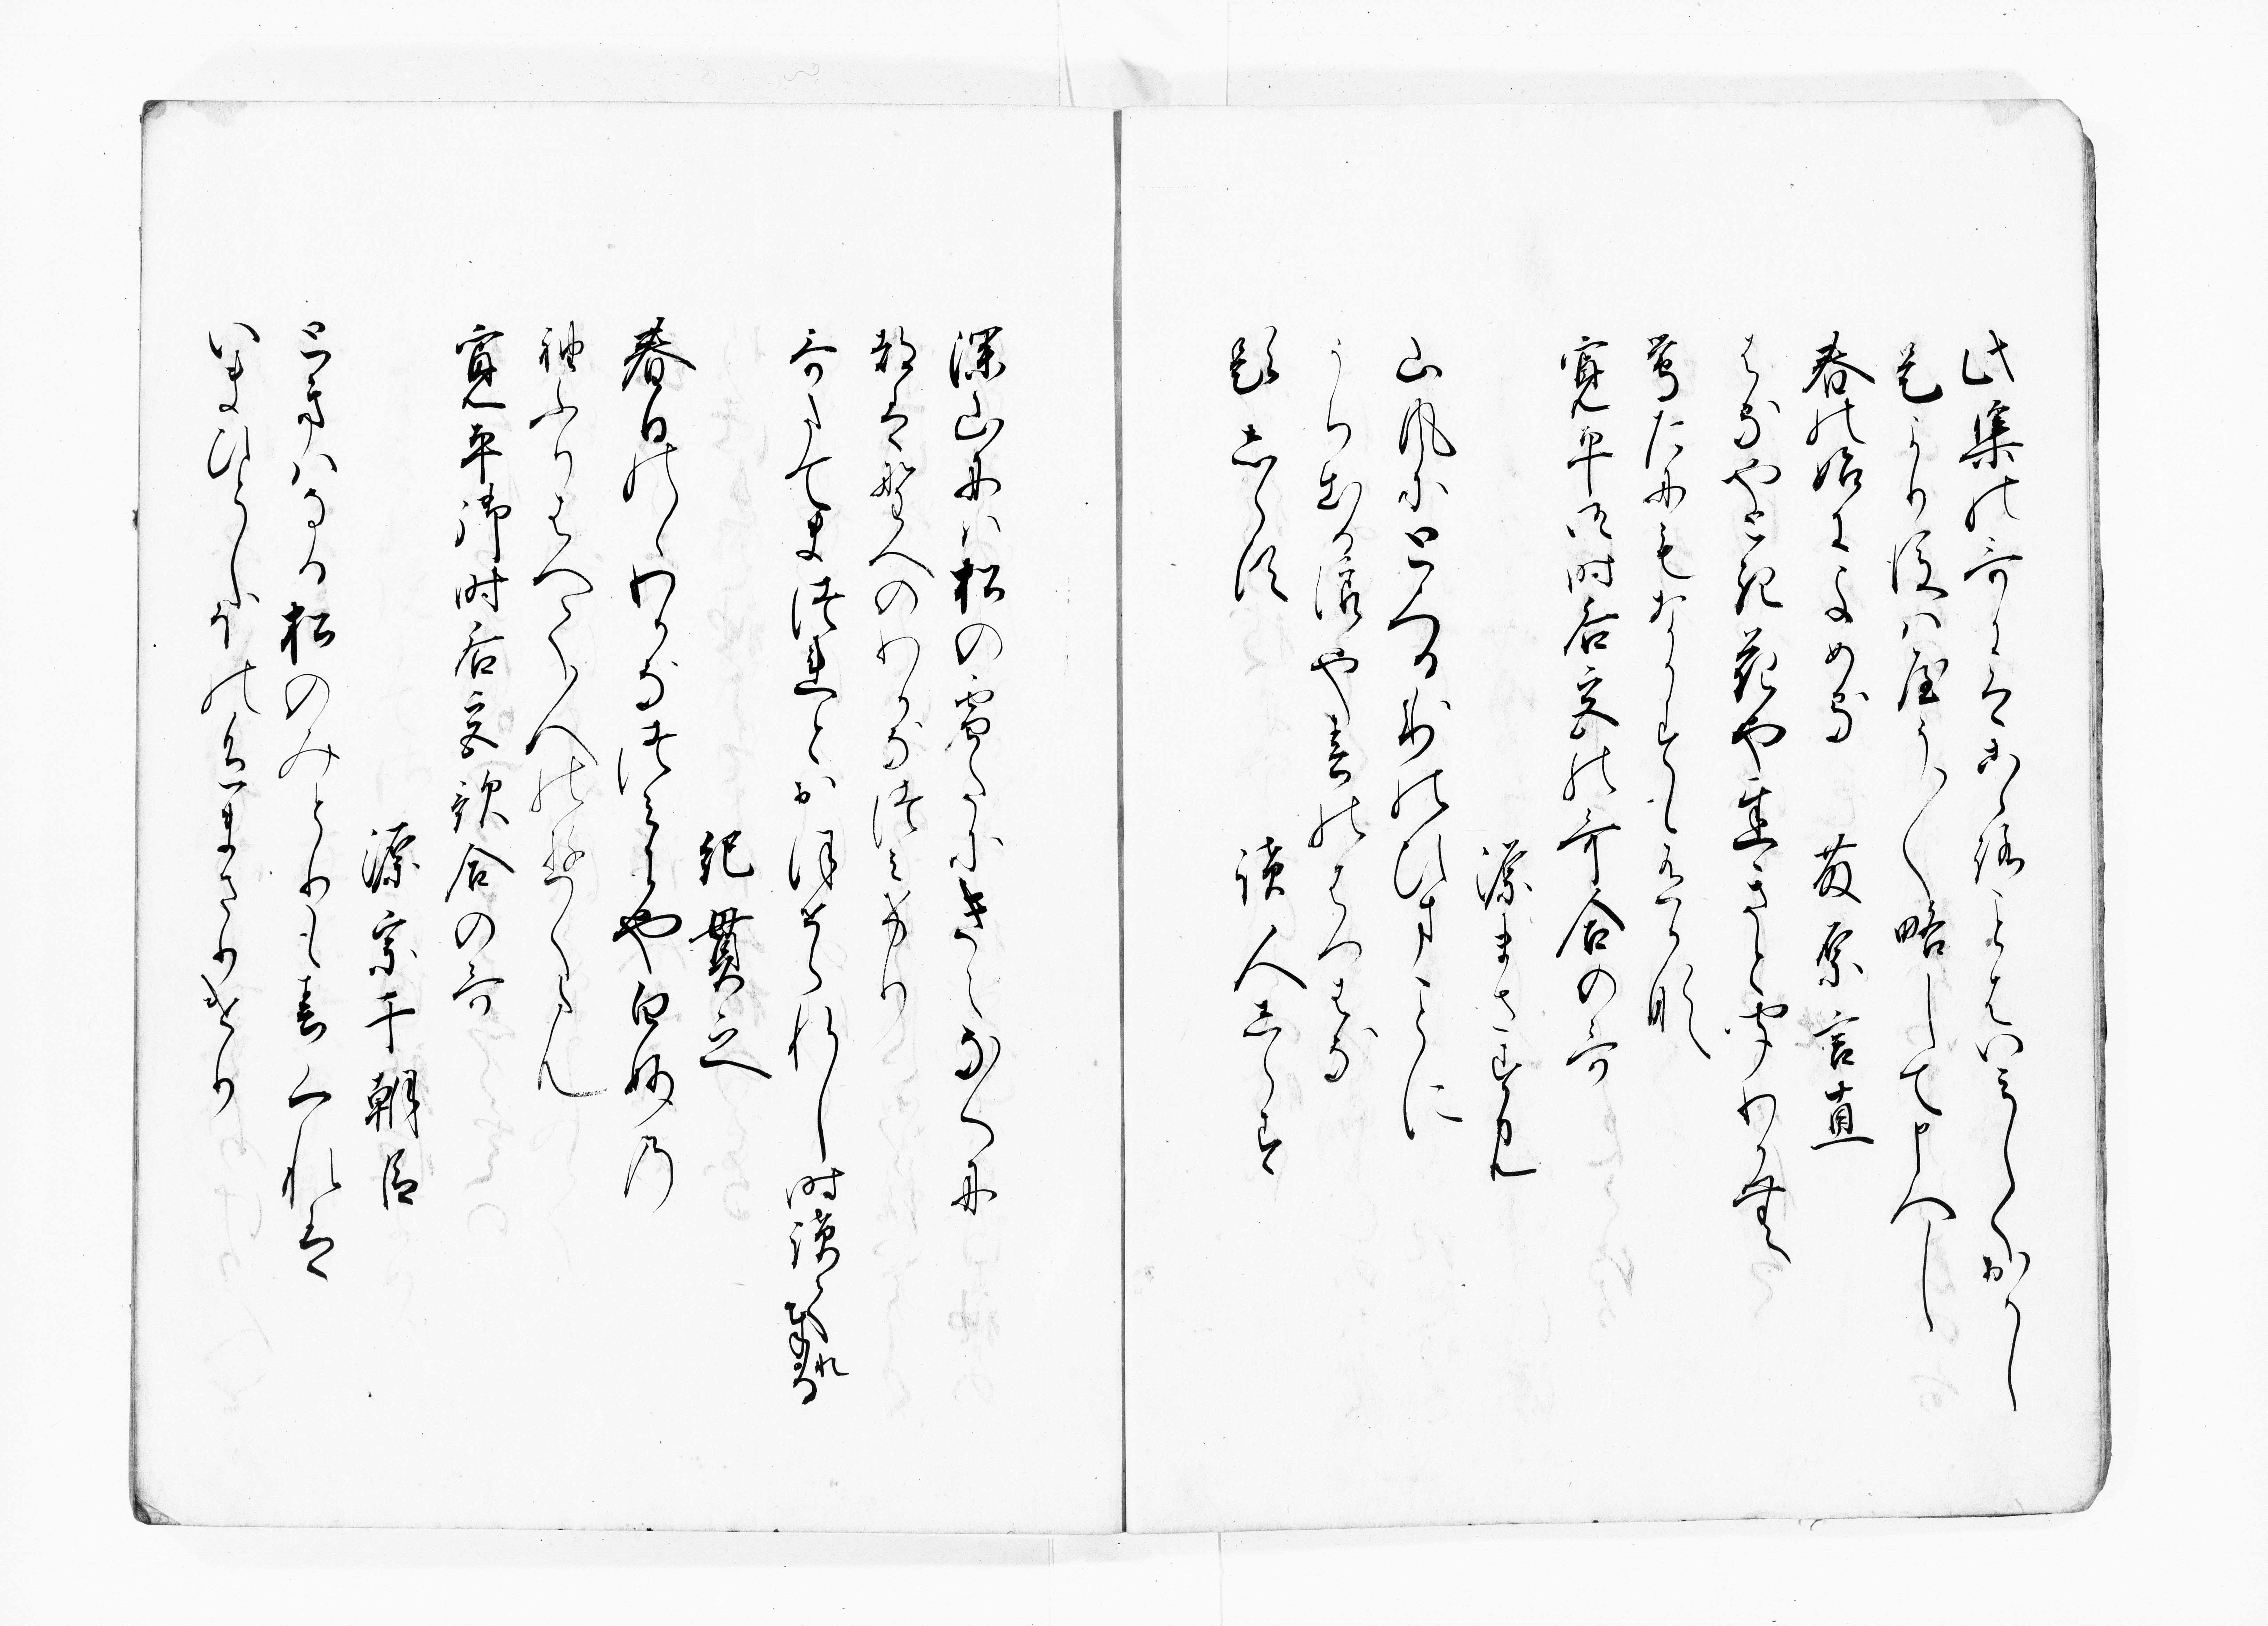 此集の哥にはあらねともいましくおかし
是より後は屋うく略して申へし
春の始によめる　藤原言直
はるやとき花やをそきと聞わかむ
鶯たにもなかすも有かな
寛平御時后宮の哥合の哥
源まさすみ
山風にとくる氷のひまことに
うち出る浪や春のはつはな
題しらす　読人しらす
深山には松の雪たにきえなくに
都は野へのわかなつみけり
哥たてまつれとおほせられし時読てたてまつれる
紀貫之
春日野のわかなつみにや白妙の
袖ふりはへて人の行らん
寛平御時后宮歌合の哥
源宗于朝臣
ときはなる松のみとりも春くれは
いまひとしほの色まさりけり